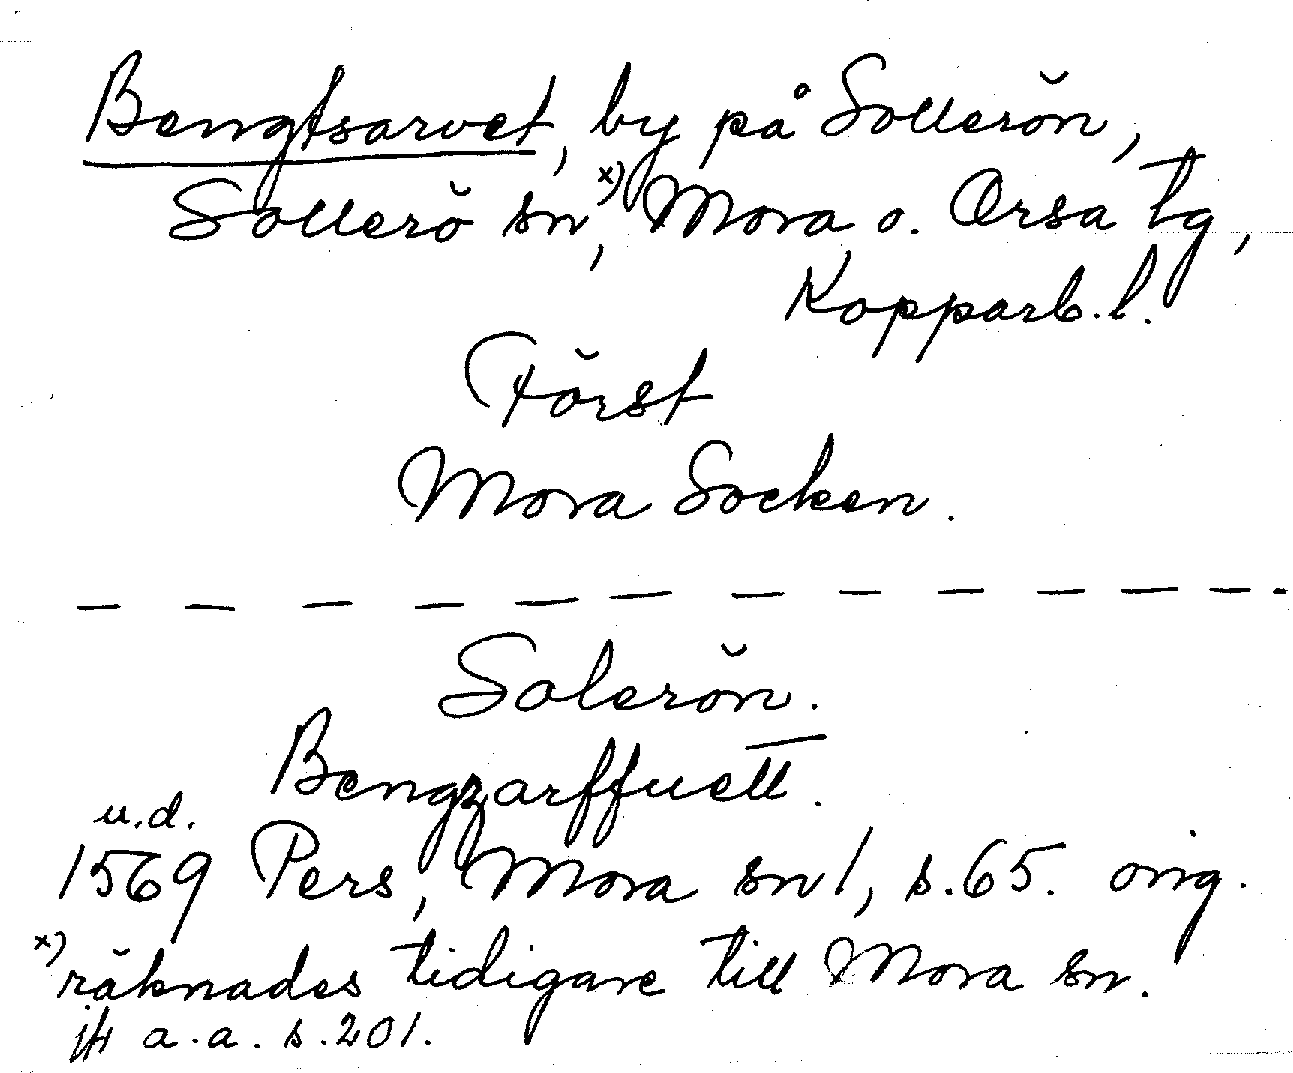 Bengtsarvet, by på Sollerön,
Sollerö sn,x) Mora o. Orsa tg,
Kopparb.l.
Först
Mora Socken.
Solerön.
Bengzarffuett.
u.d.
1569 Pers, Mora sn1, s.65. orig.
x) räknades tidigare till Mora sn.
jfr a.a. s.201.